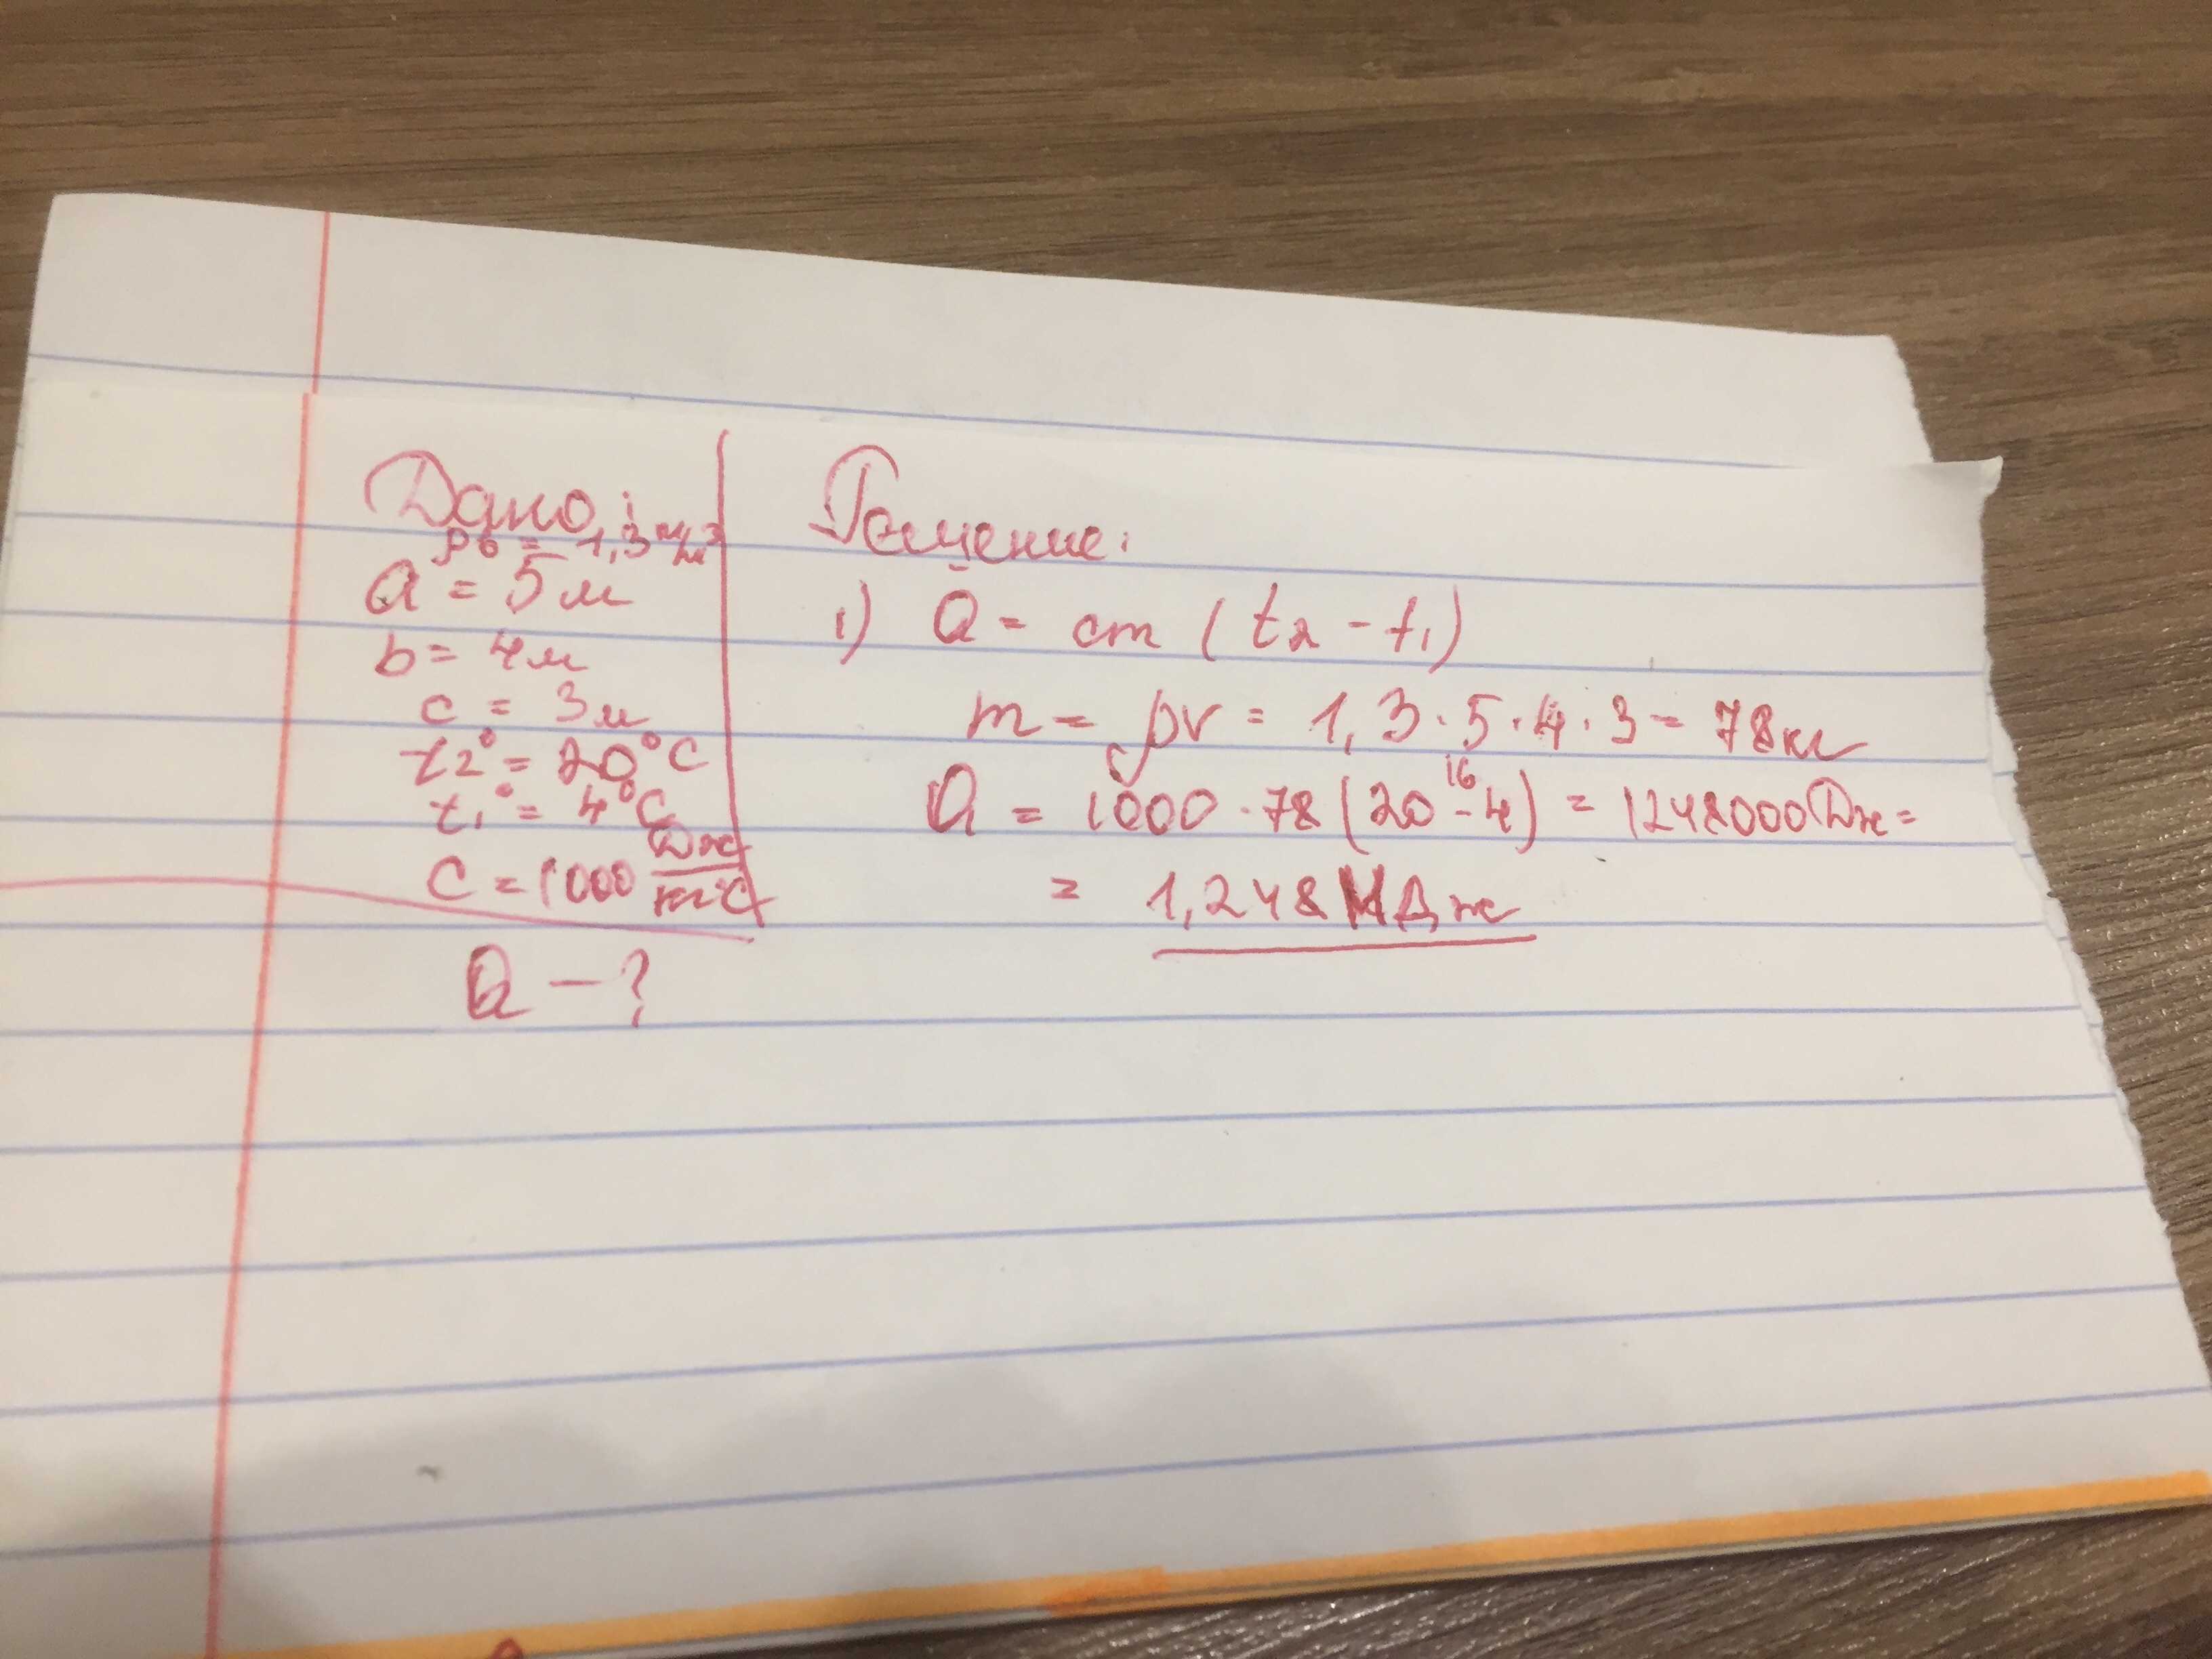 Дано:
ρв = 1,3 кг/м³
a = 5 м
b = 4 м
c = 3 м
t2° = 20°C
t1° = 4°C
C = 1000 Дж/кг°C
Q - ?
Решение:
1) Q = cm (t2 - t1)
m = ρv = 1,3 · 5 · 4 · 3 = 78 кг
16
Q = 1000 · 78 (20 - 4) = 1248000 Дж =
= 1,248 МДж